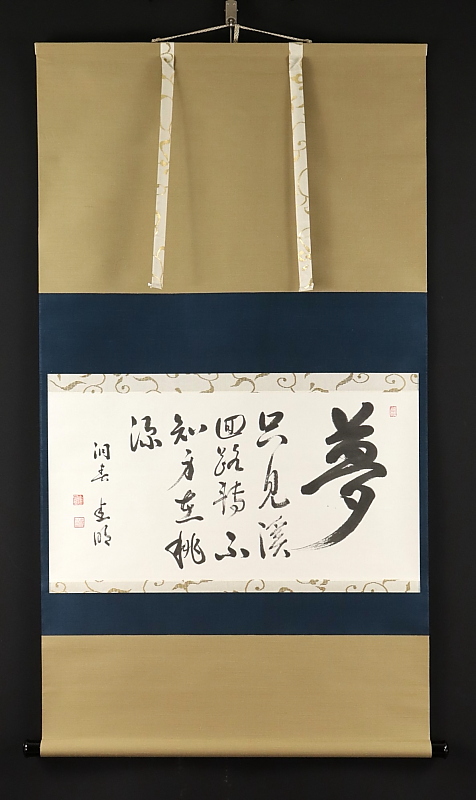 夢
只見溪
回路轉不
知身在桃
源
洞春